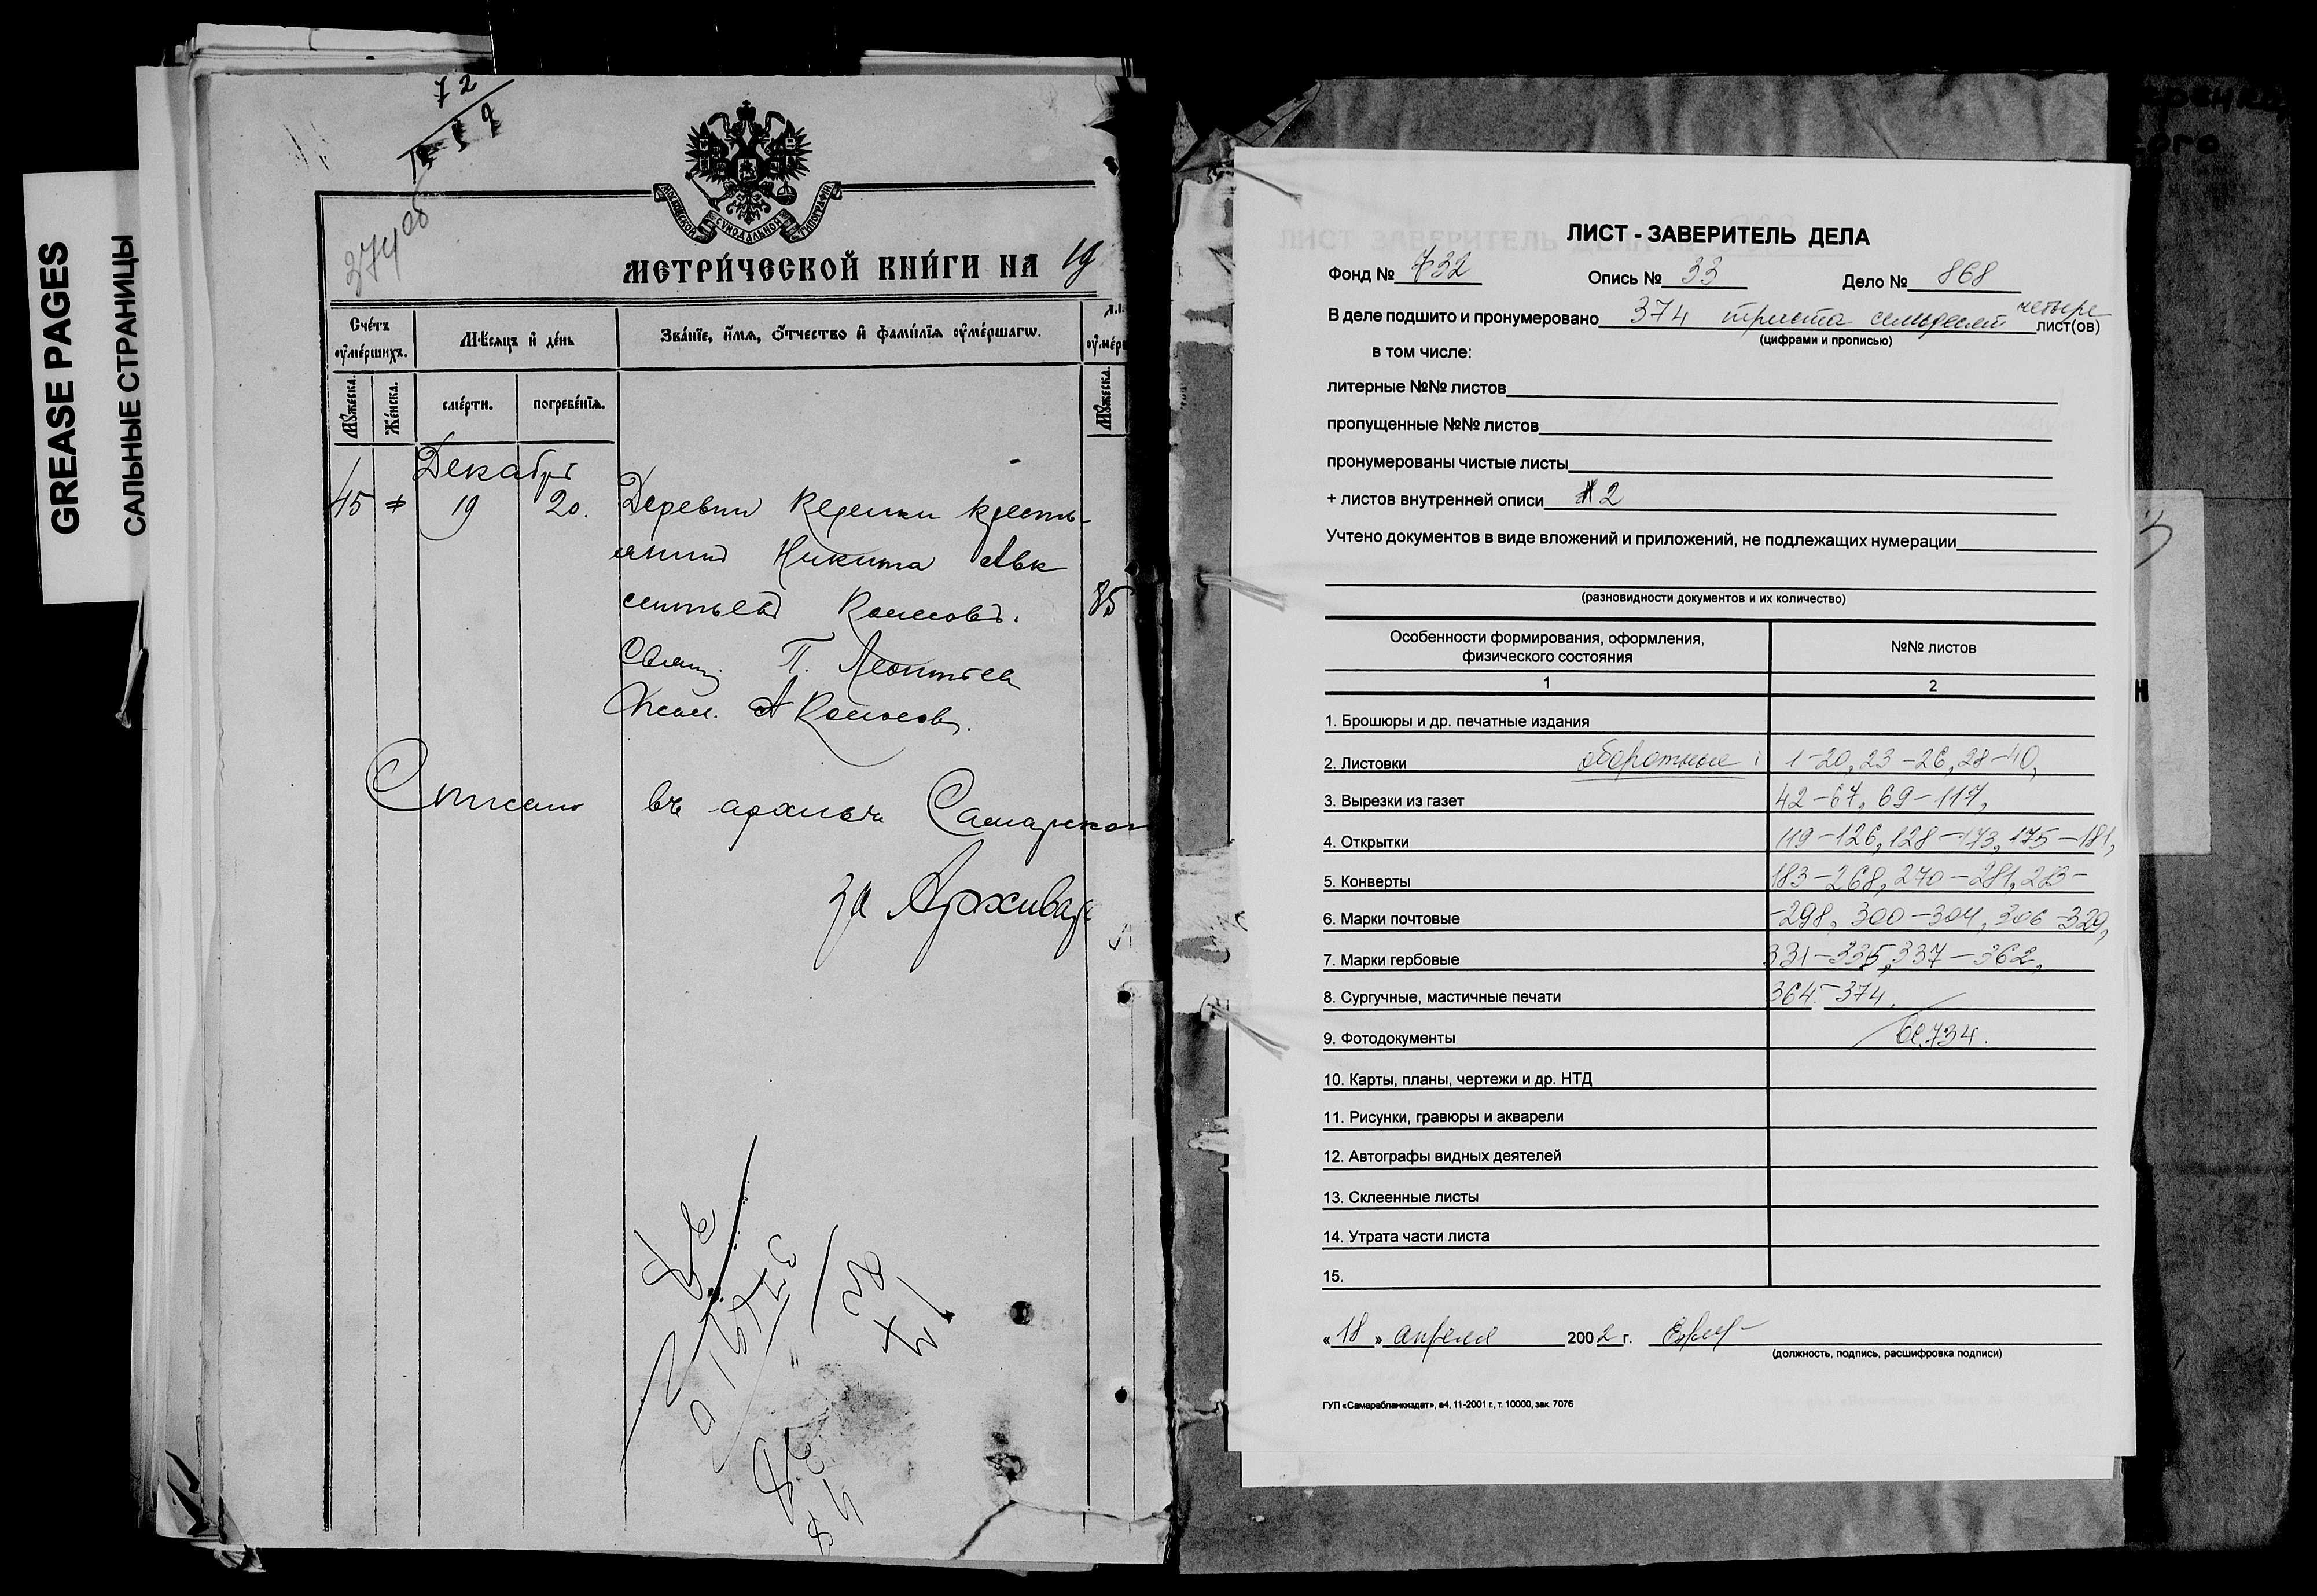 GREASE PAGES
САЛЬНЫЕ СТРАНИЦЫ
72
374 об
МОСКОВСКОЙ СѴНОДАЛЬНОЙ ТИПОГРАФІИ
МЕТРИ́ЧЕСКОЙ КНИ́ГИ НА 19
Сче́тъ ᲂу҆ме́ршихъ.
Мѣ́сяцъ и҆ де́нь
Зва́нїе, и҆́мя, ѻ҆́тчество и҆ фами́лїя ᲂу҆ме́ршагѡ.
Мꙋ́жеска.
Же́нска.
сме́рти.
погребе́нїя.
Мꙋ́жеска.
Декабрь
45 19 20. Деревни кресть-
янинъ Никита Авк
сентьевъ 85
Свящ. П. Леонтьев
Псал. А
въ архивъ Самарской
за Архивар
ЛИСТ - ЗАВЕРИТЕЛЬ ДЕЛА
Фонд № 732 Опись № 33 Дело № 868
В деле подшито и пронумеровано 374 триста семьдесят четыре лист(ов)
(цифрами и прописью)
в том числе:
литерные №№ листов
пропущенные №№ листов
пронумерованы чистые листы
+ листов внутренней описи 2
Учтено документов в виде вложений и приложений, не подлежащих нумерации
(разновидности документов и их количество)
Особенности формирования, оформления,
физического состояния
№№ листов
1 2
1. Брошюры и др. печатные издания
2. Листовки оборотные: 1-20, 23-26, 28-40,
3. Вырезки из газет 42-67, 69-117,
4. Открытки 119-126, 128-173, 175-181,
5. Конверты 183-268, 270-281, 283-
6. Марки почтовые -298, 300-304, 306-329,
7. Марки гербовые 331-335, 337-362,
8. Сургучные, мастичные печати 364-374.
9. Фотодокументы 734.
10. Карты, планы, чертежи и др. НТД
11. Рисунки, гравюры и акварели
12. Автографы видных деятелей
13. Склеенные листы
14. Утрата части листа
15.
«18» апреля 2002 г.
(должность, подпись, расшифровка подписи)
ГУП «Самарабланкиздат», а4, 11-2001 г., т. 10000, зак. 7076